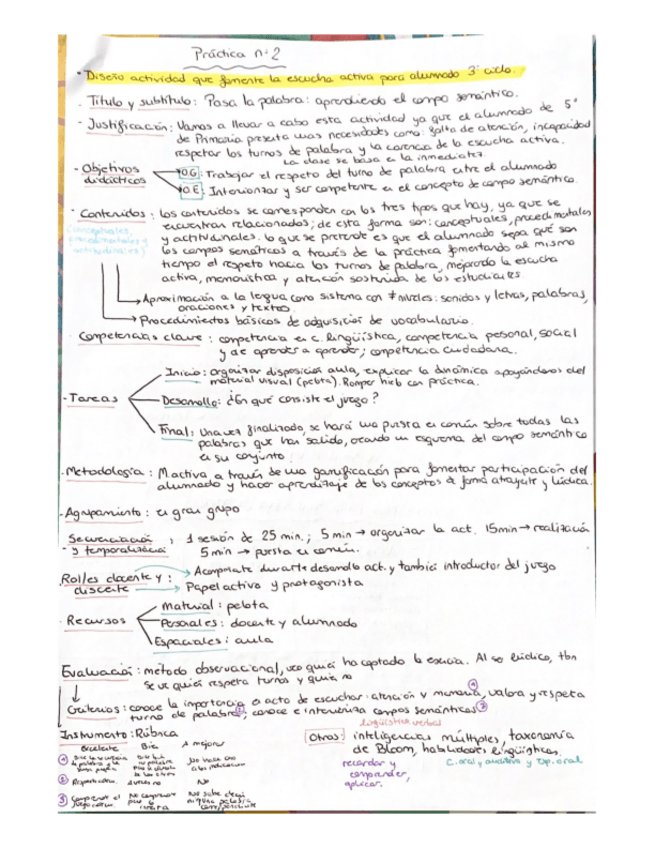 Práctica nº 2
· Diseño actividad que fomente la escucha activa para alumnado 3º ciclo.
· Título y subtítulo: Pasa la palabra: aprendiendo el campo semántico.
- Justificación: Vamos a llevar a cabo esta actividad ya que el alumnado de 5º
de Primaria presenta unas necesidades como: falta de atención, incapacidad
respetar los turnos de palabra y la carencia de la escucha activa.
La clase se basa en la inmediatez.
- Objetivos didácticos
O.G: Trabajar el respeto del turno de palabra entre el alumnado
O.E: Interiorizar y ser competente en el concepto de campo semántico.
· Contenidos: los contenidos se corresponden con los tres tipos que hay, ya que se
encuentran relacionados; de esta forma son: conceptuales, procedimentales
y actitudinales. Lo que se pretende es que el alumnado sepa qué son
los campos semáticos a través de la práctica fomentando al mismo
tiempo el respeto hacia los turnos de palabra, mejorando la escucha
activa, memorística y atención sostenida de los estudiantes.
(conceptuales,
procedimentales y
actitudinales)
→ Aproximación a la lengua como sistema con ≠ niveles: sonidos y letras, palabras,
oraciones y textos.
→ Procedimientos básicos de adquisición de vocabulario.
· Competencias clave: competencia en c. lingüística, competencia personal, social
y de aprender a aprender; competencia ciudadana.
- Tareas
Inicio: organizar disposición aula, explicar la dinámica apoyándonos del
material visual (pelota). Romper hielo con práctica.
Desarrollo: ¿En qué consiste el juego?
Final: Una vez finalizado, se hará una puesta en común sobre todas las
palabras que han salido, creando un esquema del campo semántico
en su conjunto.
- Metodología: M activa a través de una gamificación para fomentar participación del
alumnado y hacer aprendizaje de los conceptos de forma atrayente y lúdica.
- Agrupamiento: en gran grupo
Secuenciación : 1 sesión de 25 min.; 5 min → organizar la act. 15min → realización
- y temporalización 5 min → puesta en común.
Rol/es docente y : → Acompañante durante desarrollo act. y también introductor del juego
discente → Papel activo y protagonista
· Recursos
Material: pelota
Personales: docente y alumnado
Espaciales: aula
Evaluación: método observacional, veo quién ha captado la esencia. Al ser lúdico, tbn
se ve quién respeta turnos y quién no
Criterios: conoce la importancia acto de escuchar: atención y memoria①, valora y respeta
turno de palabra②; conoce e interioriza campos semánticos③
Instrumento: Rúbrica
Excelente Bien A mejorar
② A veces no No
lingüística verbal
Otros: inteligencias múltiples, taxonomía
de Bloom, habilidades lingüísticas.
recordar y
comprender,
aplicar.
C. oral y auditiva y exp. oral